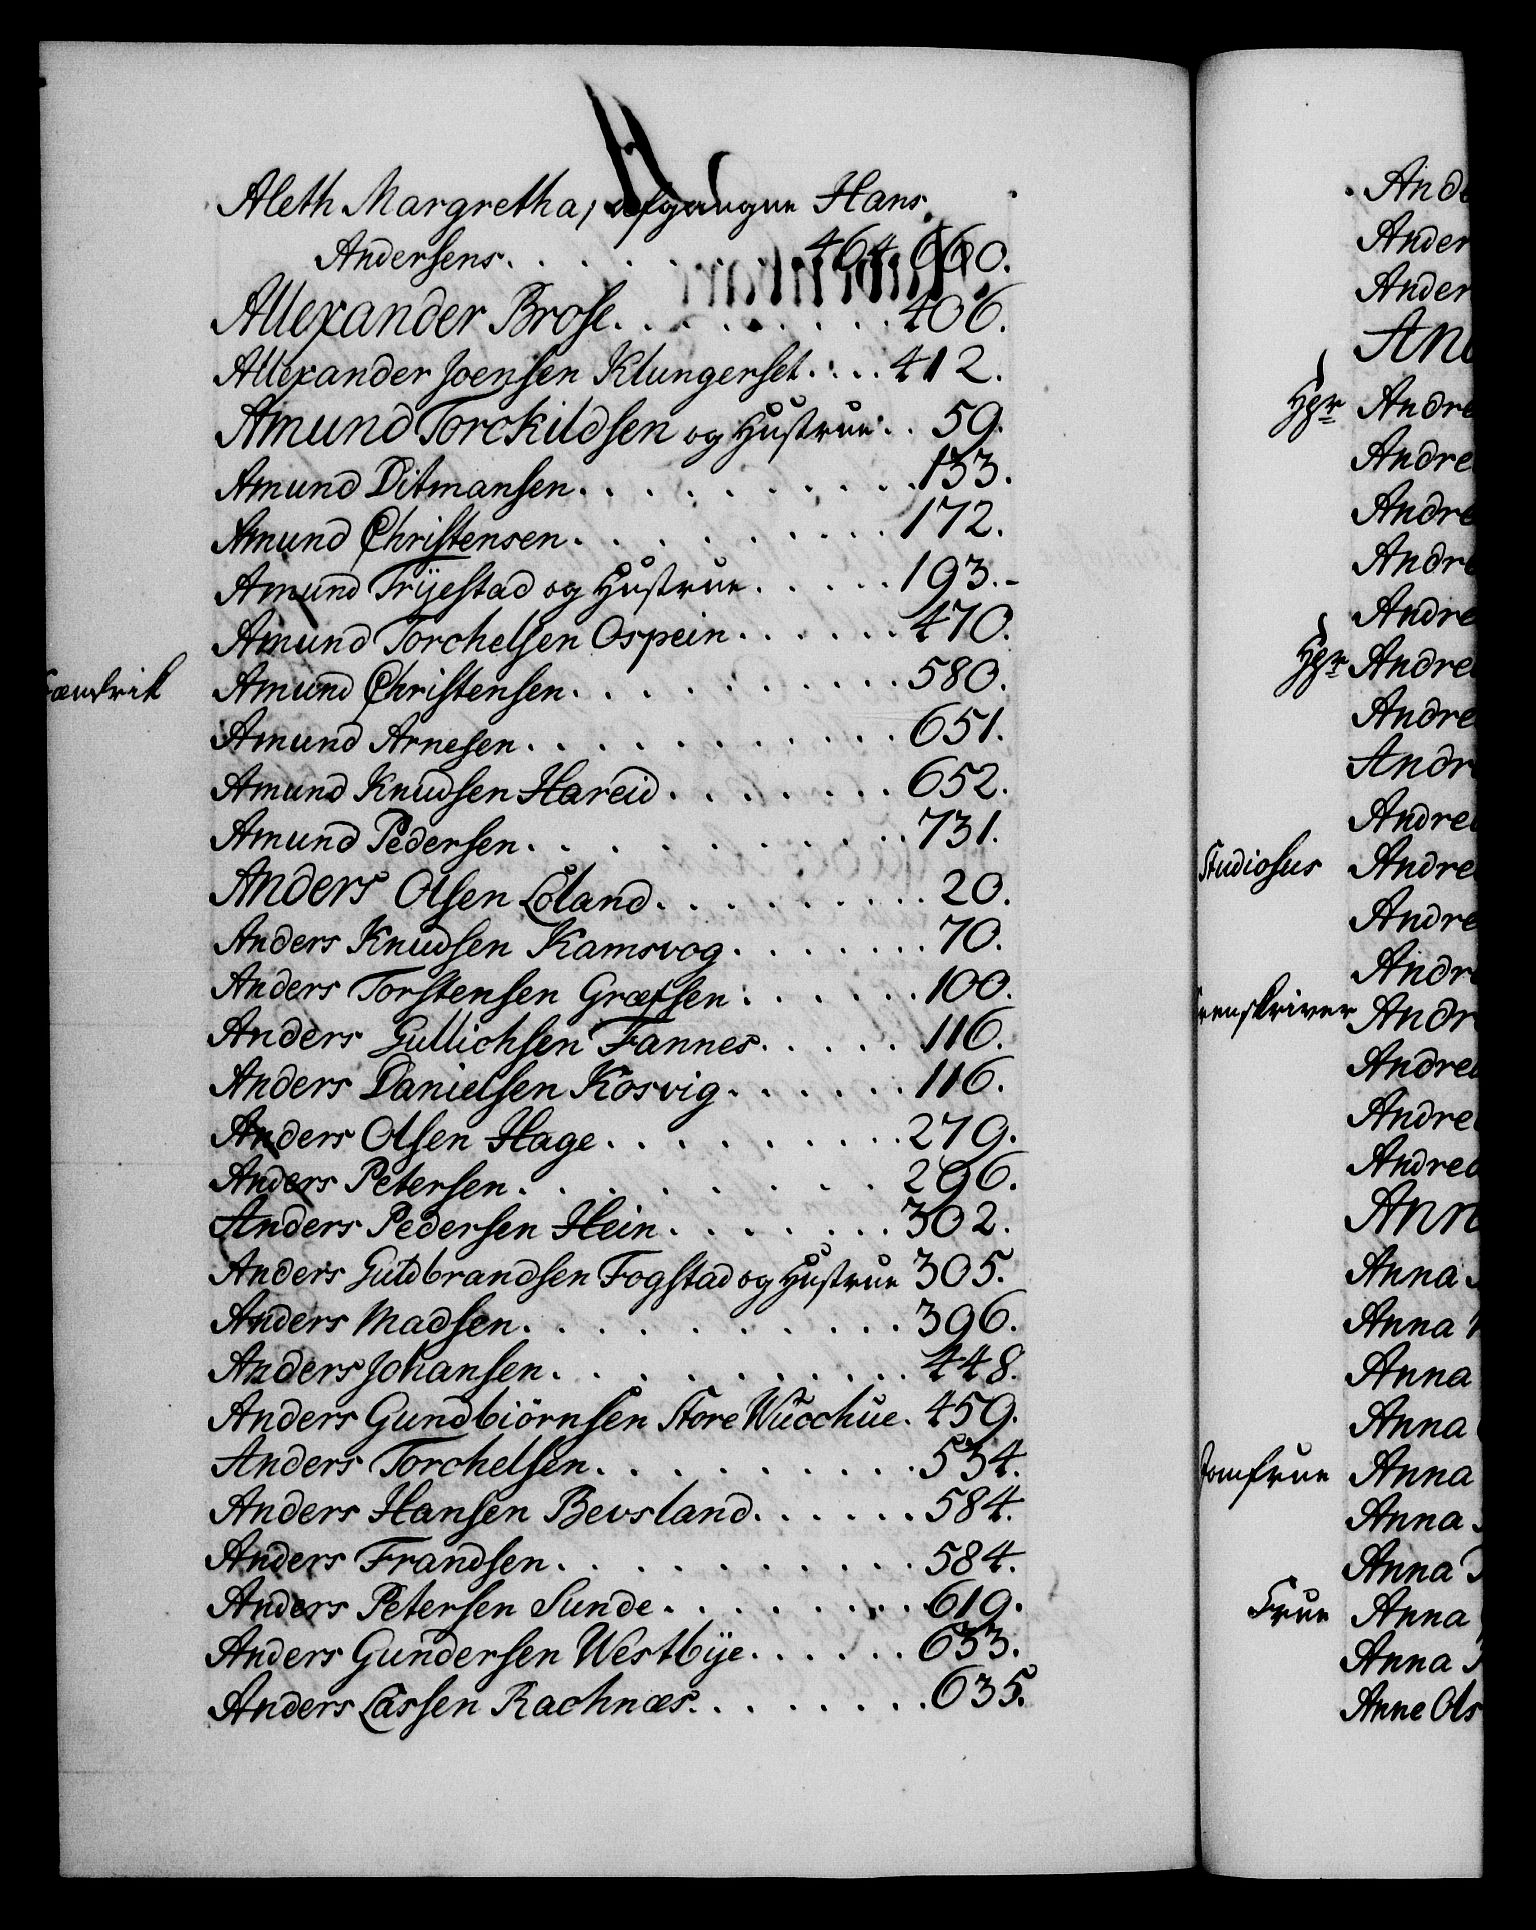 Aleth Margretha, afgangne Hans
Andersens. . . . . . 464. 660.
Allexander Brose. . . . . . . . . 406.
Allexander Joensen Klungerset. . . . 412.
Amund Torckildsen og Hustrue. . 59.
Amund Ditmansen. . . . . . . . . . . 133.
Amund Christensen. . . . . . . . . . 172.
Amund Trÿestad og Hustrue. . . . . 193.
Amund Torchelsen Ospein. . . . . . 470.
Fændrik Amund Christensen. . . . . . . . . . 580.
Amund Arnesen. . . . . . . . . . . 651.
Amund Knudsen Hareid. . . . . . . 652.
Amund Pedersen. . . . . . . . . . . 731.
Anders Olsen Löland. . . . . . . . . 20.
Anders Knudsen Kamsvog. . . . . . . 70.
Anders Torstensen Græfsen. . . . . . 100.
Anders Gullichsen Fannes. . . . . 116.
Anders Danielsen Kosvig. . . . . . 116.
Anders Olsen Hage. . . . . . . . . 279.
Anders Petersen. . . . . . . . . . . 296.
Anders Pedersen Hein. . . . . . . 302.
Anders Guldbrandsen Fogstad og Hustrue 305.
Anders Madsen. . . . . . . . . . . 396.
Anders Johansen. . . . . . . . . . . 448.
Anders Gundbiörnsen Store Wucchue. 459.
Anders Torchelsen. . . . . . . . . . 534.
Anders Hansen Bevsland. . . . . . 584.
Anders Frandsen. . . . . . . . . . . 584.
Anders Petersen Sunde. . . . . . . . 619.
Anders Gundersen Westbÿe. . . . . . 633.
Anders Lassen Rachnæs. . . . . . . . 635.
And
Ander
Ander
And
Hr Andre
Andre
Andre
Andre
Andre
Hr Andre
Andre
Andr
Andre
Studiosus Andre
Andre
Andre
Andr
Andre
Andre
Andrea
Ann
Anna
Anna
Anna
Anna
Jomfrue Anna
Anna
Anna
Frue Anna
Anna
Anne Ols